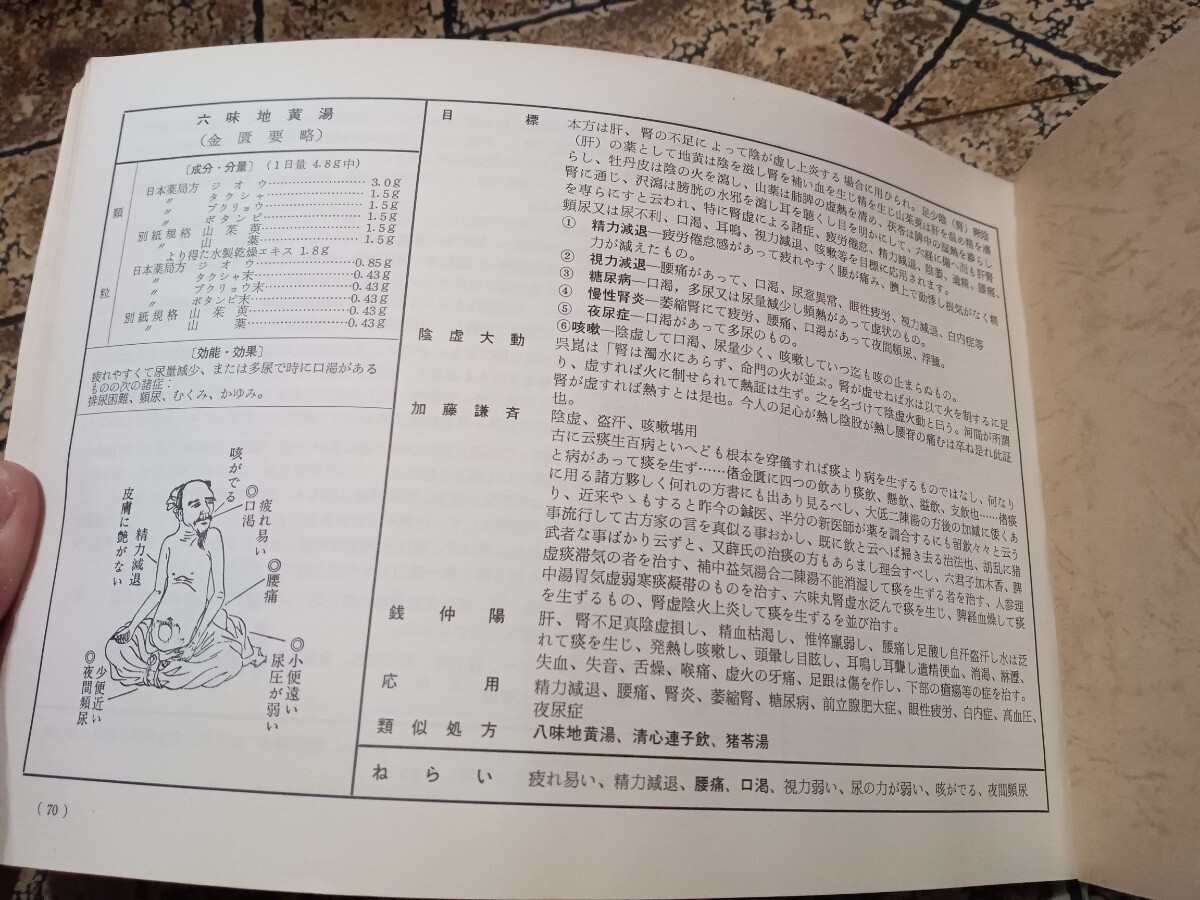 六味地黄湯
（金匱要略）
〔成分・分量〕（1日量 4.8g中）
顆粒
日本薬局方 ジオウ……………………3.0g
〃 タクシャ……………………1.5g
〃 ブクリョウ……………………1.5g
〃 ボタンピ……………………1.5g
別紙規格 山茱萸……………………1.5g
〃 山薬……………………1.5g
より得た水製乾燥エキス 1.8g
日本薬局方 ジオウ……………………0.85g
〃 タクシャ末……………………0.43g
〃 ブクリョウ末……………………0.43g
〃 ボタンピ末……………………0.43g
別紙規格 山茱萸……………………0.43g
〃 山薬……………………0.43g
〔効能・効果〕
疲れやすくて尿量減少、または多尿で時に口渇がある
ものの次の諸症：
排尿困難、頻尿、むくみ、かゆみ。
咳がでる
◎口渇
疲れ易い
◎腰痛
皮膚に艶がない
精力減退
◎小便遠い
尿圧が弱い
◎少便近い
夜間頻尿
目標
本方は肝、腎の不足によって陰が虚し上炎する場合に用ひられ。足少陰（腎）厥陰
（肝）の薬として地黄は陰を滋し腎を補い血を生じ精を生じ山茱萸は肝を温め精を濇
らし、牡丹皮は陰の火を瀉し、山薬は肺脾の虚熱を清め、茯苓は脾中の湿熱を滲らし
腎に通じ、沢瀉は膀胱の水邪を瀉し耳を聴くし目を明かにして、六経に備へ而も肝腎
を専らにすと云われ、特に腎虚による諸症、疲労倦怠、精力減退、陰萎、遺精、腰痛、
頻尿又は尿不利、口渇、耳鳴、視力減退、咳嗽等を目標に応用されます。
① 精力減退―疲労倦怠感があって疲れやすく腰が痛み、臍上で動悸し根気がなく精
力が減えたもの。
② 視力減退―腰痛があって、口渇、尿意異常、眼性疲労、視力減退、白内症等
③ 糖尿病―口渇，多尿又は尿量減少し頻熱があって虚状のもの。
④ 慢性腎炎―萎縮腎にて疲労、腰痛、口渇があって夜間頻尿、浮腫。
⑤ 夜尿症―口渇があって多尿のもの。
⑥咳嗽―陰虚して口渇、尿量少く、咳嗽していつ迄も咳の止まらぬもの。
陰虚大動
呉崑は「腎は濁水にあらず、命門の火が並ぶ。腎が虚せねば水は以て火を制するに足
り、虚すれば火に制せられて熱証は生ず。之を名づけて陰虚火動と曰う。河間が所謂
腎が虚すれば熱すとは是也。今人の足心が熱し陰股が熱し腰脊の痛むは卒ね是れ此証
也。
加藤謙斉
陰虚、盗汗、咳嗽堪用
古に云痰生百病といへども根本を穿儀すれば痰より病を生ずるものではなし、何なり
と病があって痰を生ず……偖金匱に四つの飲あり痰飲、懸飲、溢飲、支飲也……偖痰
に用る諸方夥しく何れの方書にも出あり見るべし、大低二陳湯の方後の加減に倭くあ
り、近来やゝもすると昨今の鍼医、半分の新医師が薬を調合するにも留飲々々と云う
事流行して古方家の言を真似る事おかし、既に飲と云へば掃き去る治法也、胡乱に猪
武者な事ばかり云ずと、又薜氏の治痰の方もあらまし理会すべし、六君子加木香、脾
虚痰滞気の者を治す、補中益気湯合二陳湯不能消湿して痰を生ずる者を治す、人参理
中湯胃気虚弱寒痰凝帯のものを治す、六味丸腎虚水泛んで痰を生じ、脾経血燥して痰
を生ずるもの、腎虚陰火上炎して痰を生ずるを並び治す。
銭仲陽
肝、腎不足真陰虚損し、精血枯渇し、惟悴羸弱し、腰痛し足酸し自汗盗汗し水は泛
れて痰を生じ、発熱し咳嗽し、頭暈し目眩し、耳鳴し耳聾し遺精便血、消渇、淋瀝、
失血、失音、舌燥、喉痛、虚火の牙痛、足跟は傷を作し、下部の瘡瘍等の症を治す。
応用
精力減退、腰痛、腎炎、萎縮腎、糖尿病、前立腺肥大症、眼性疲労、白内症、高血圧、
夜尿症
類似処方
八味地黄湯、清心連子飲、猪苓湯
ねらい
疲れ易い、精力減退、腰痛、口渇、視力弱い、尿の力が弱い、咳がでる、夜間頻尿
（70）